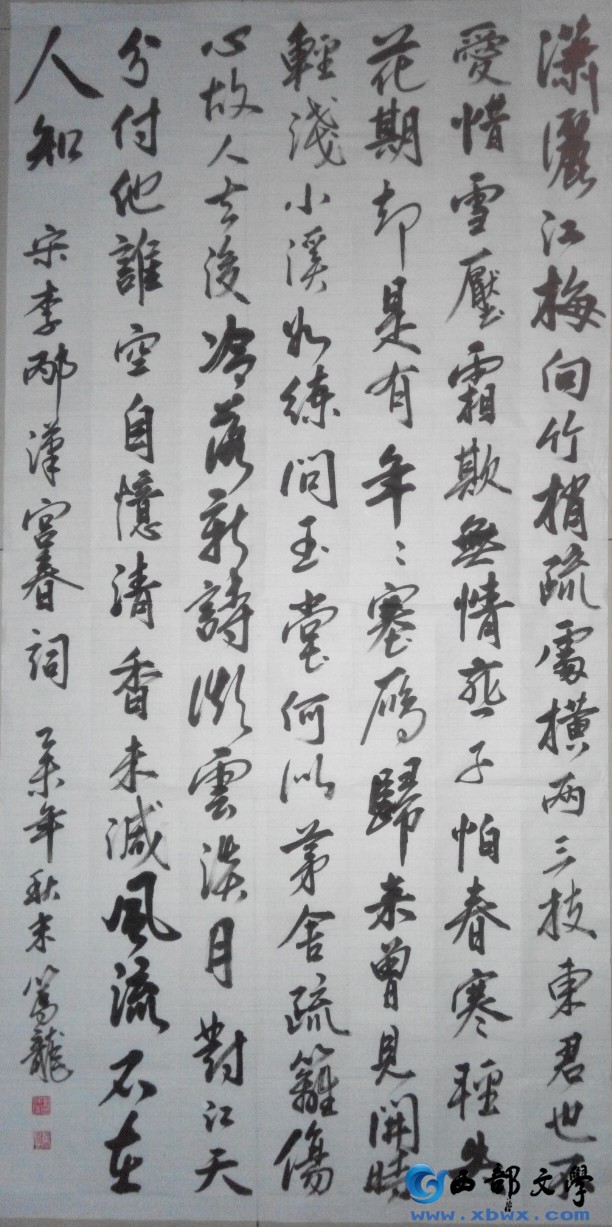 潇灑江梅向竹梢疏處橫两三枝東君也不
愛惜雪壓霜欺無情燕子怕春寒輕失
花期却是有年〻塞鴈歸来曾見開時
輕淺小溪如練問玉堂何似茅舍疏籬傷
心故人去後冷落新詩微雲淡月對江天
分付他誰空自憶清香未減風流不在
人知 宋李邴漢宮春詞 乙未年秋末 龍
西部文學
www.xbwx.com